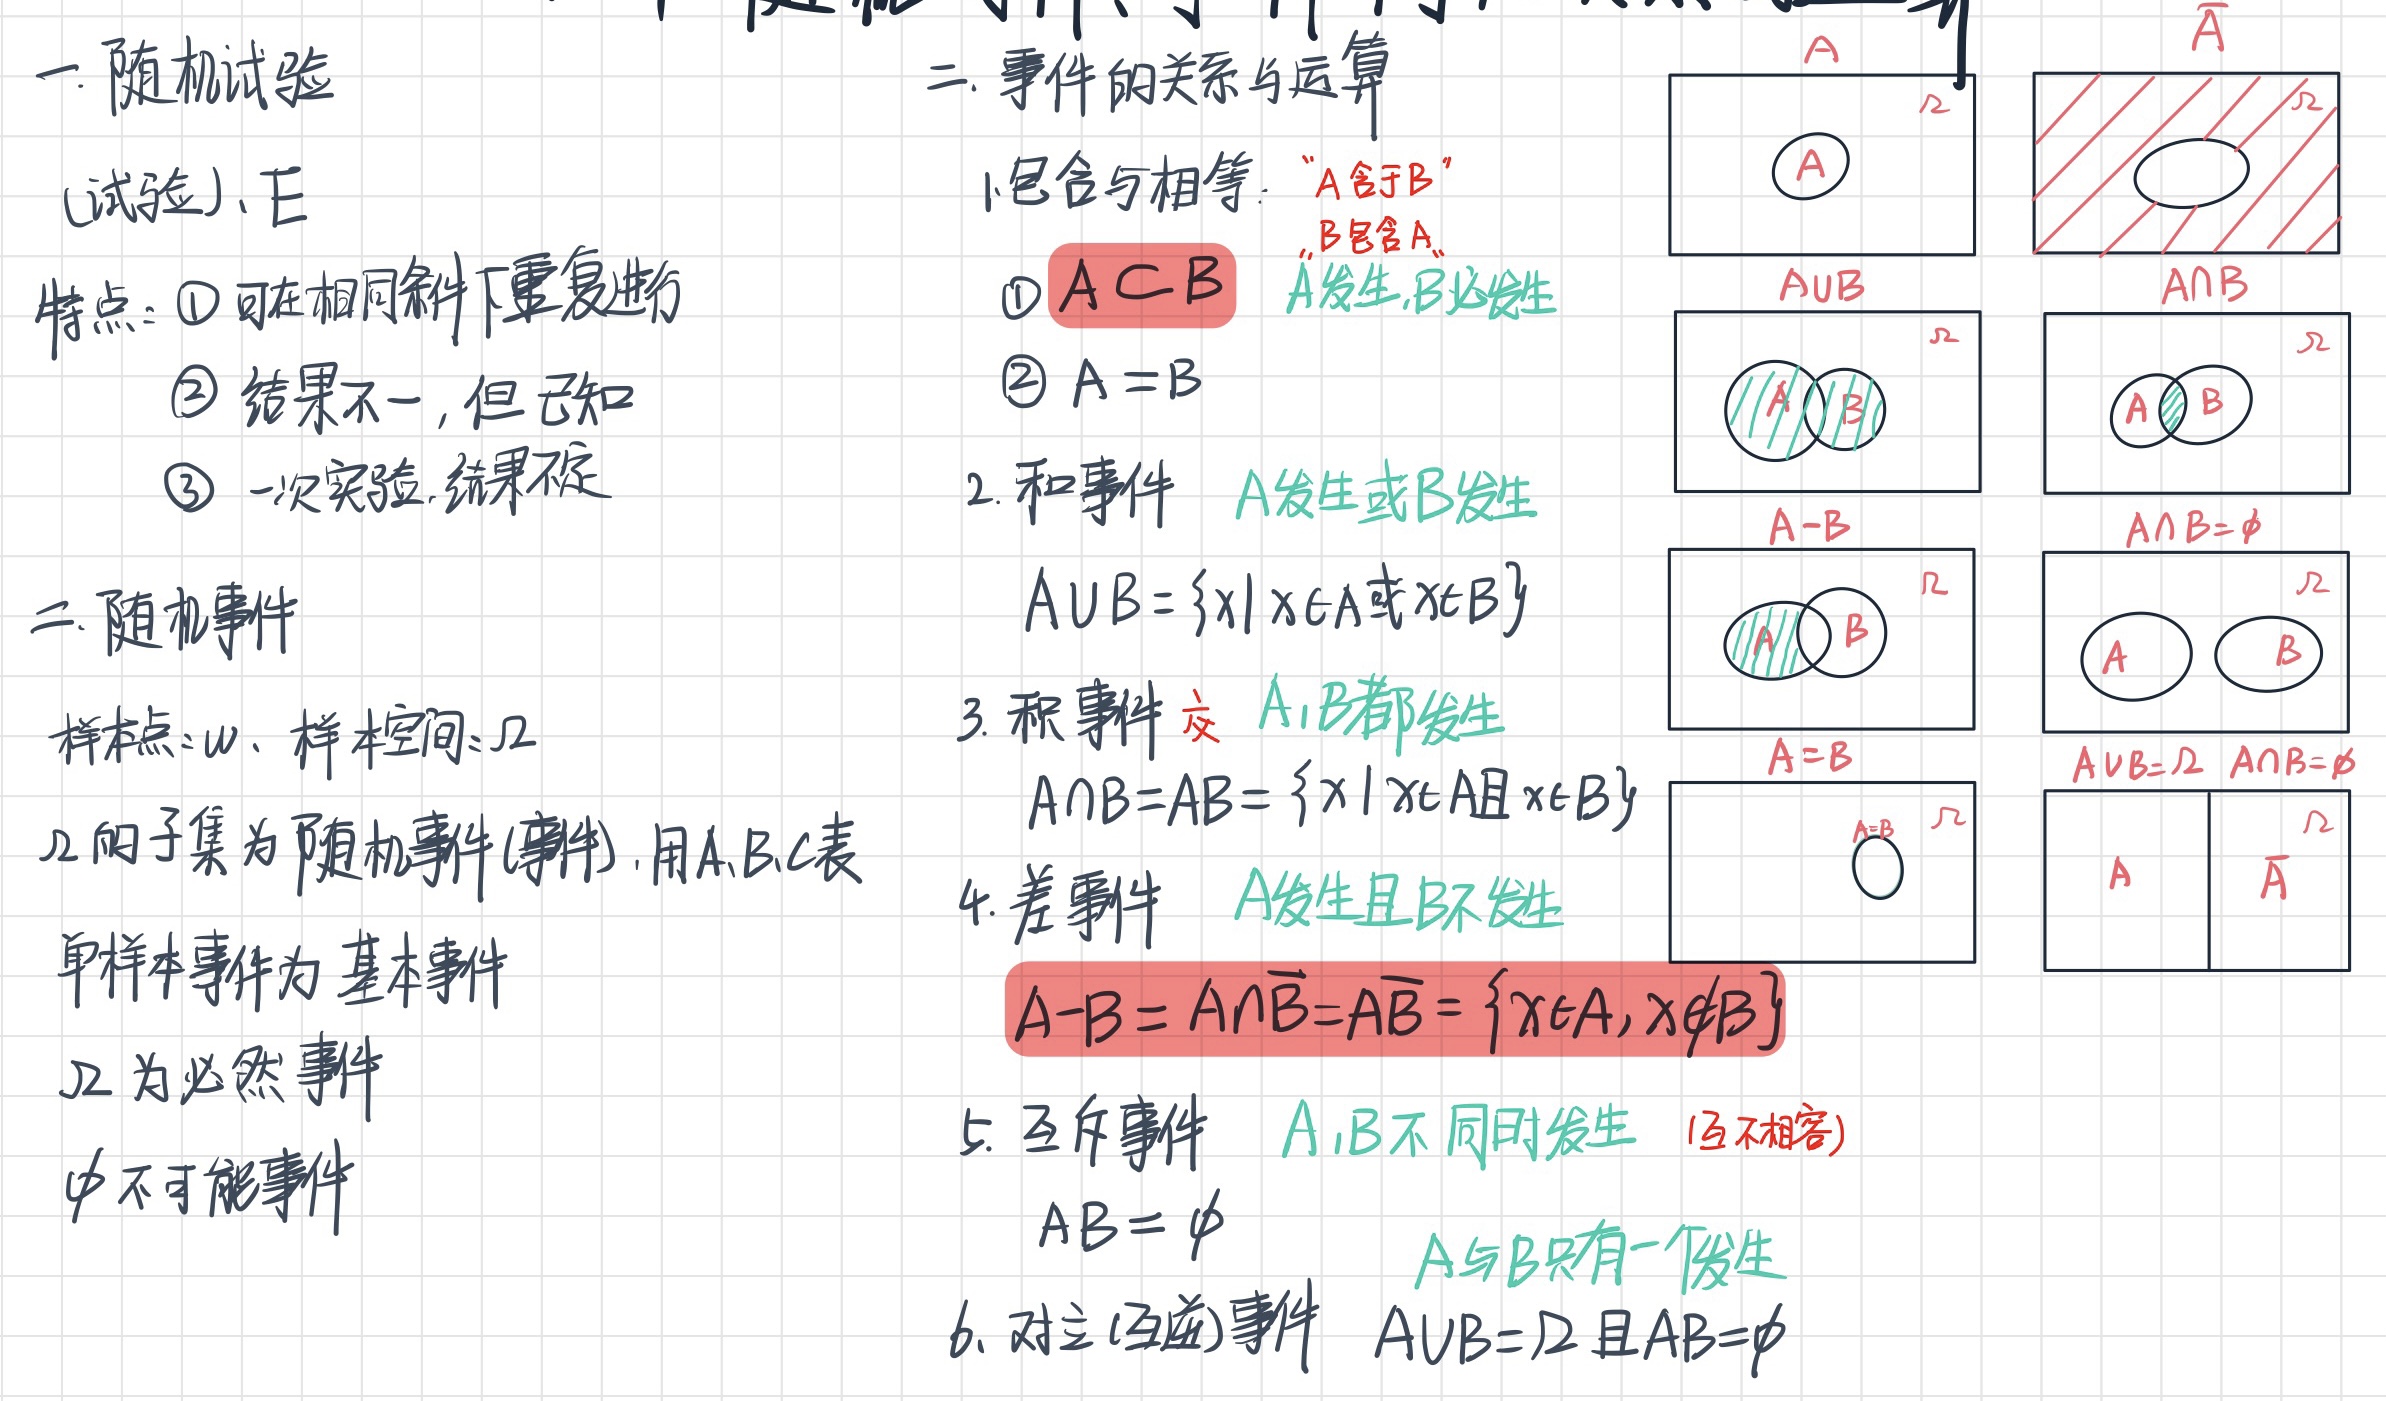 一.随机试验
(试验)、E
特点:①可在相同条件下重复进行
②结果不一,但已知
③一次实验,结果不定
二.随机事件
样本点:w、样本空间:Ω
Ω的子集为随机事件(事件),用A、B、C表
单样本事件为基本事件
Ω为必然事件
φ不可能事件
二.事件的关系与运算
1.包含与相等:
"A含于B"
"B包含A"
①A⊂B A发生,B必发生
②A=B
2.和事件 A发生或B发生
A∪B={x|x∈A或x∈B}
3.积事件 交 A,B都发生
A∩B=AB={x|x∈A且x∈B}
4.差事件 A发生且B不发生
A-B=A∩B̅=AB̅={x∈A,x∉B}
5.互斥事件 A,B不同时发生 (互不相容)
AB=φ
A与B只有一个发生
6.对立(互逆)事件 A∪B=Ω且AB=φ
A
Ω
A
A̅
Ω
A∪B
Ω
A B
A∩B
Ω
A B
A-B
Ω
A B
A∩B=φ
Ω
A B
A=B
Ω
A=B
A∪B=Ω A∩B=φ
Ω
A A̅